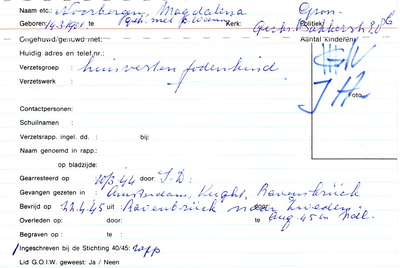 Naam etc. Noorbergen, Magdalina Gron.
Geboren: 14.3.1901 te Kerk: Politiek:
Ongehuwd/gehuwd met: Aantal kinderen:
Huidig adres en telef.nr.:
Verzetsgroep : huisvesten Jodenkind
Verzetswerk :
Foto
Contactpersonen:
Schuilnamen :
Verzetsrapp. ingel. dd. : bij:
Naam genoemd in rapp.:
op bladzijde:
Gearresteerd op : 10/3.44 door: S.D.
Gevangen gezeten in : Amsterdam, Vught, Ravensbrück
Bevrijd op : 22.4.45 uit: Ravenbrück naar Zweden
Overleden op: door: te: Aug. 45 in Ned.
Begraven op : te :
Ingeschreven bij de Stichting 40/45:
Lid G.O.I.W. geweest: Ja / Neen